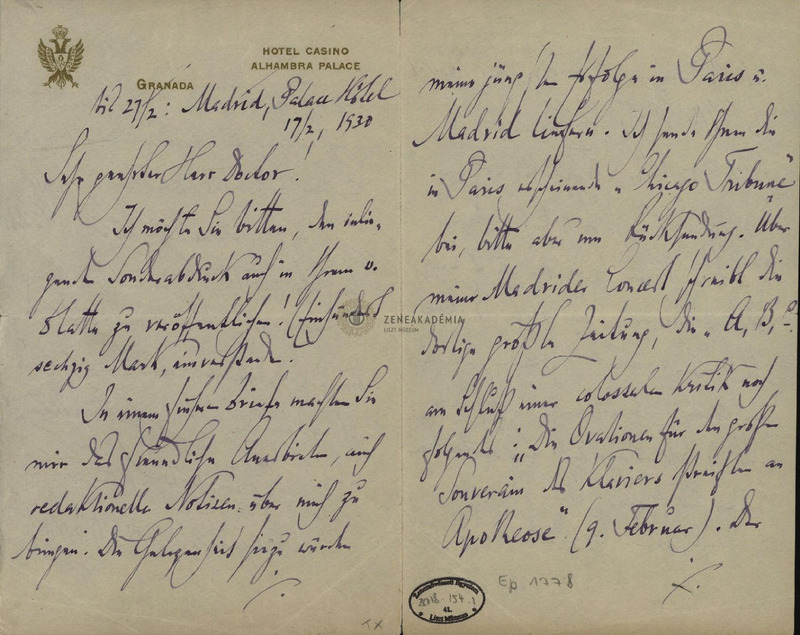 HOTEL CASINO
ALHAMBRA PALACE
GRANADA
bis 27/2: Madrid, Palace Hôtel
17/2, 1930
Sehr geehrter Herr Doctor!
Ich möchte Sie bitten, den inlie-
genden Sonderabdruck auch in Ihrem
Blatte zu veröffentlichen! (Einhundert
sechzig Mark, einverstanden.
In einem früheren Briefe machten Sie
mir das freundliche Anerbieten, auch
redaktionelle Notizen über mich zu
bringen. Die Gelegenheit hiezu würden
meine jüngsten Erfolge in Paris u.
Madrid liefern. Ich sende Ihnen die
in Paris erscheinende "Chicago Tribune"
bei, bitte aber um Rücksendung. Über
mein Madrider Concert schreibt die
dortige größte Zeitung, die "A, B, C"
am Schluß einer colossalen Kritik noch
folgendes: "Die Ovationen für den großen
Souverän des Klaviers streiften an
Apotheose". (9. Februar). Der
ZENEAKADÉMIA
LISZT MÚZEUM
Ep 1778
41.
Liszt Múzeum